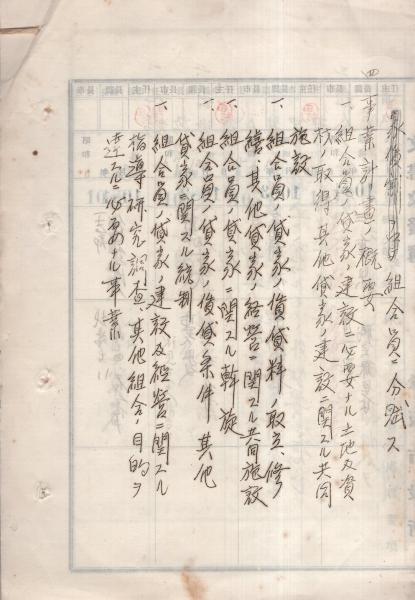 組合員ニ分賦ス
四 事業計画ノ概要
一、組合員ノ貸家ノ建設ニ必要ナル土地及資
材ノ取得其他貸家ノ建設ニ関スル共同
施設
一、組合員ノ貸家ノ賃貸料ノ取立、修
繕、其他貸家ノ経営ニ関スル共同施設
一、組合員ノ貸家ニ関スル斡旋
一、組合員ノ貸家ノ賃貸条件其他
貸家ニ関スル統制
一、組合員ノ貸家ノ建設及経営ニ関スル
指導研究調査、其他組合ノ目的ヲ
達スルニ必要ナル事業